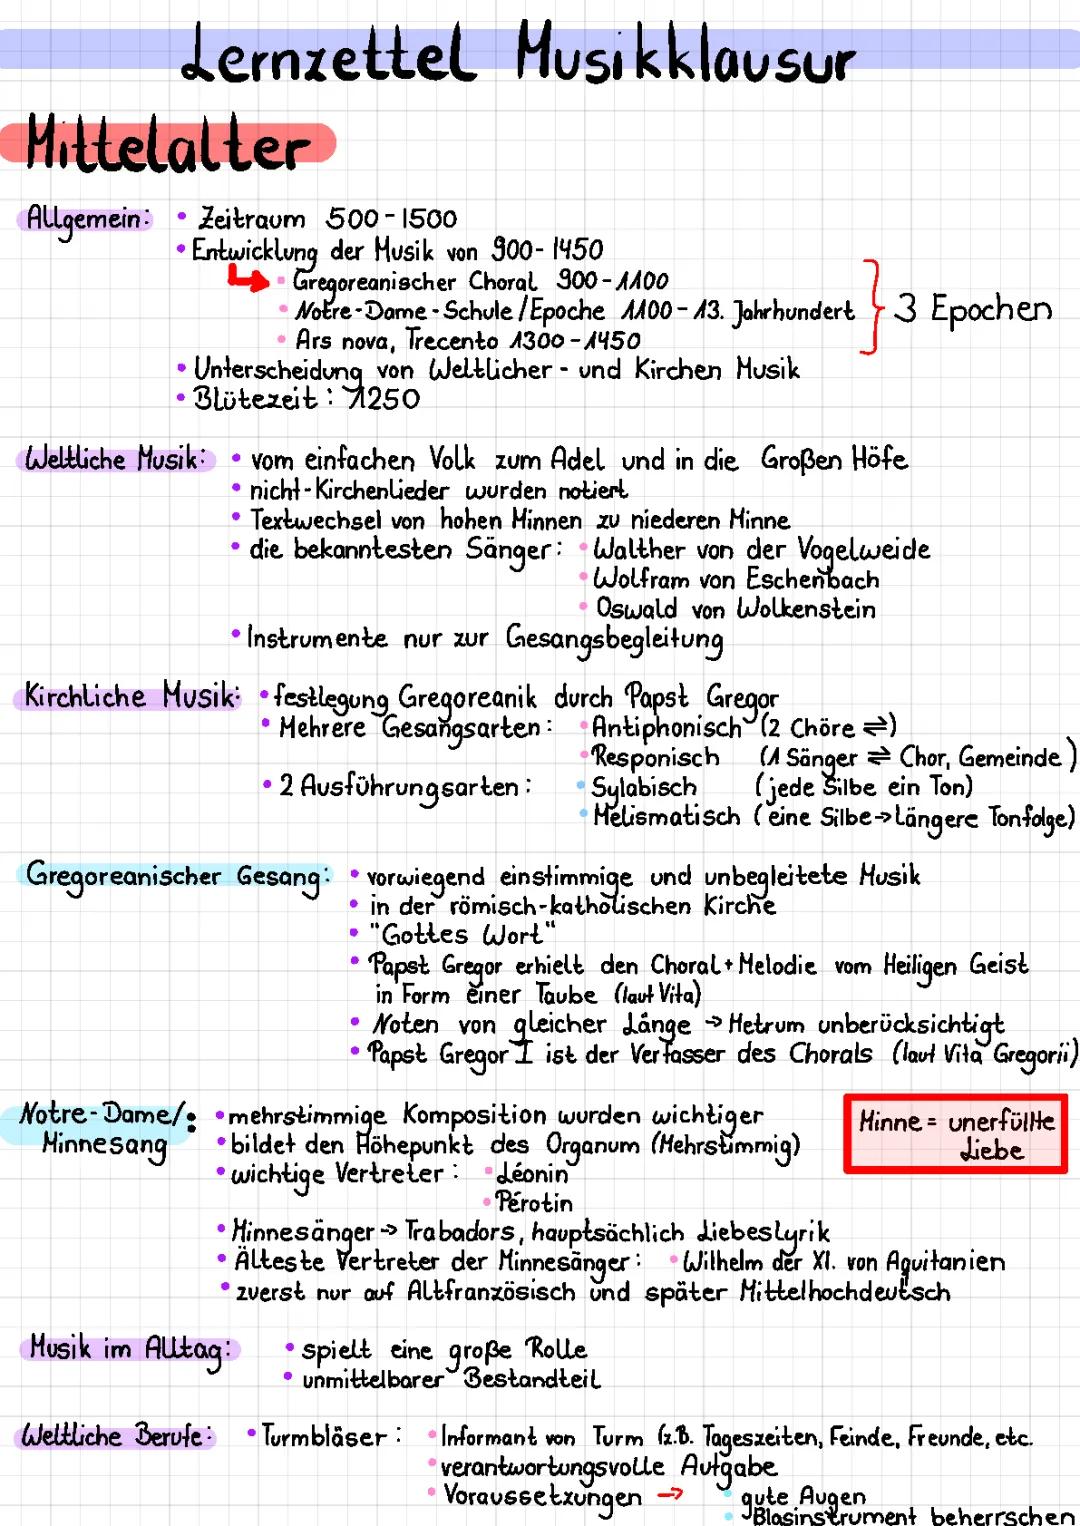 Lernzettel Musikklausur
Mittelalter
Allgemein: • Zeitraum 500-1500
• Entwicklung der Musik von 900-1450
• Gregoreanischer Choral 900-1100
• Notre-Dame-Schule/Epoche 1100-13. Jahrhundert
3 Epochen
• Ars nova, Trecento 1300-1450
• Unterscheidung von Weltlicher- und Kirchen Musik
• Blütezeit: 1250
Weltliche Musik: • vom einfachen Volk zum Adel und in die Großen Höfe
• nicht-Kirchenlieder wurden notiert
• Textwechsel von hohen Minnen zu niederen Minne
• die bekanntesten Sänger: • Walther von der Vogelweide
• Wolfram von Eschenbach
• Oswald von Wolkenstein
• Instrumente nur zur Gesangsbegleitung
Kirchliche Musik: • festlegung Gregoreanik durch Papst Gregor
• Mehrere Gesangsarten: • Antiphonisch (2 Chöre ⇌)
• Responisch (1 Sänger ⇌ Chor, Gemeinde)
• 2 Ausführungsarten: • Sylabisch (jede Silbe ein Ton)
• Melismatisch (eine Silbe→Längere Tonfolge)
Gregoreanischer Gesang: • vorwiegend einstimmige und unbegleitete Musik
• in der römisch-katholischen Kirche
• "Gottes Wort"
• Papst Gregor erhielt den Choral+Melodie vom Heiligen Geist
in Form einer Taube (laut Vita)
• Noten von gleicher Länge → Metrum unberücksichtigt
• Papst Gregor I ist der Verfasser des Chorals (laut Vita Gregorii)
Notre-Dame/: • mehrstimmige Komposition wurden wichtiger
Minnesang • bildet den Höhepunkt des Organum (Mehrstimmig)
Minne = unerfüllte
Liebe
• wichtige Vertreter: • Léonin
• Pérotin
• Minnesänger → Trabadors, hauptsächlich Liebeslyrik
• Älteste Vertreter der Minnesänger: • Wilhelm der XI. von Aquitanien
• zuerst nur auf Altfranzösisch und später Mittelhochdeutsch
Musik im Alltag: • spielt eine große Rolle
• unmittelbarer Bestandteil
Weltliche Berufe: • Turmbläser: • Informant von Turm (z.B. Tageszeiten, Feinde, Freunde, etc.
• verantwortungsvolle Aufgabe
• Voraussetzungen → • gute Augen
• Blasinstrument beherrschen